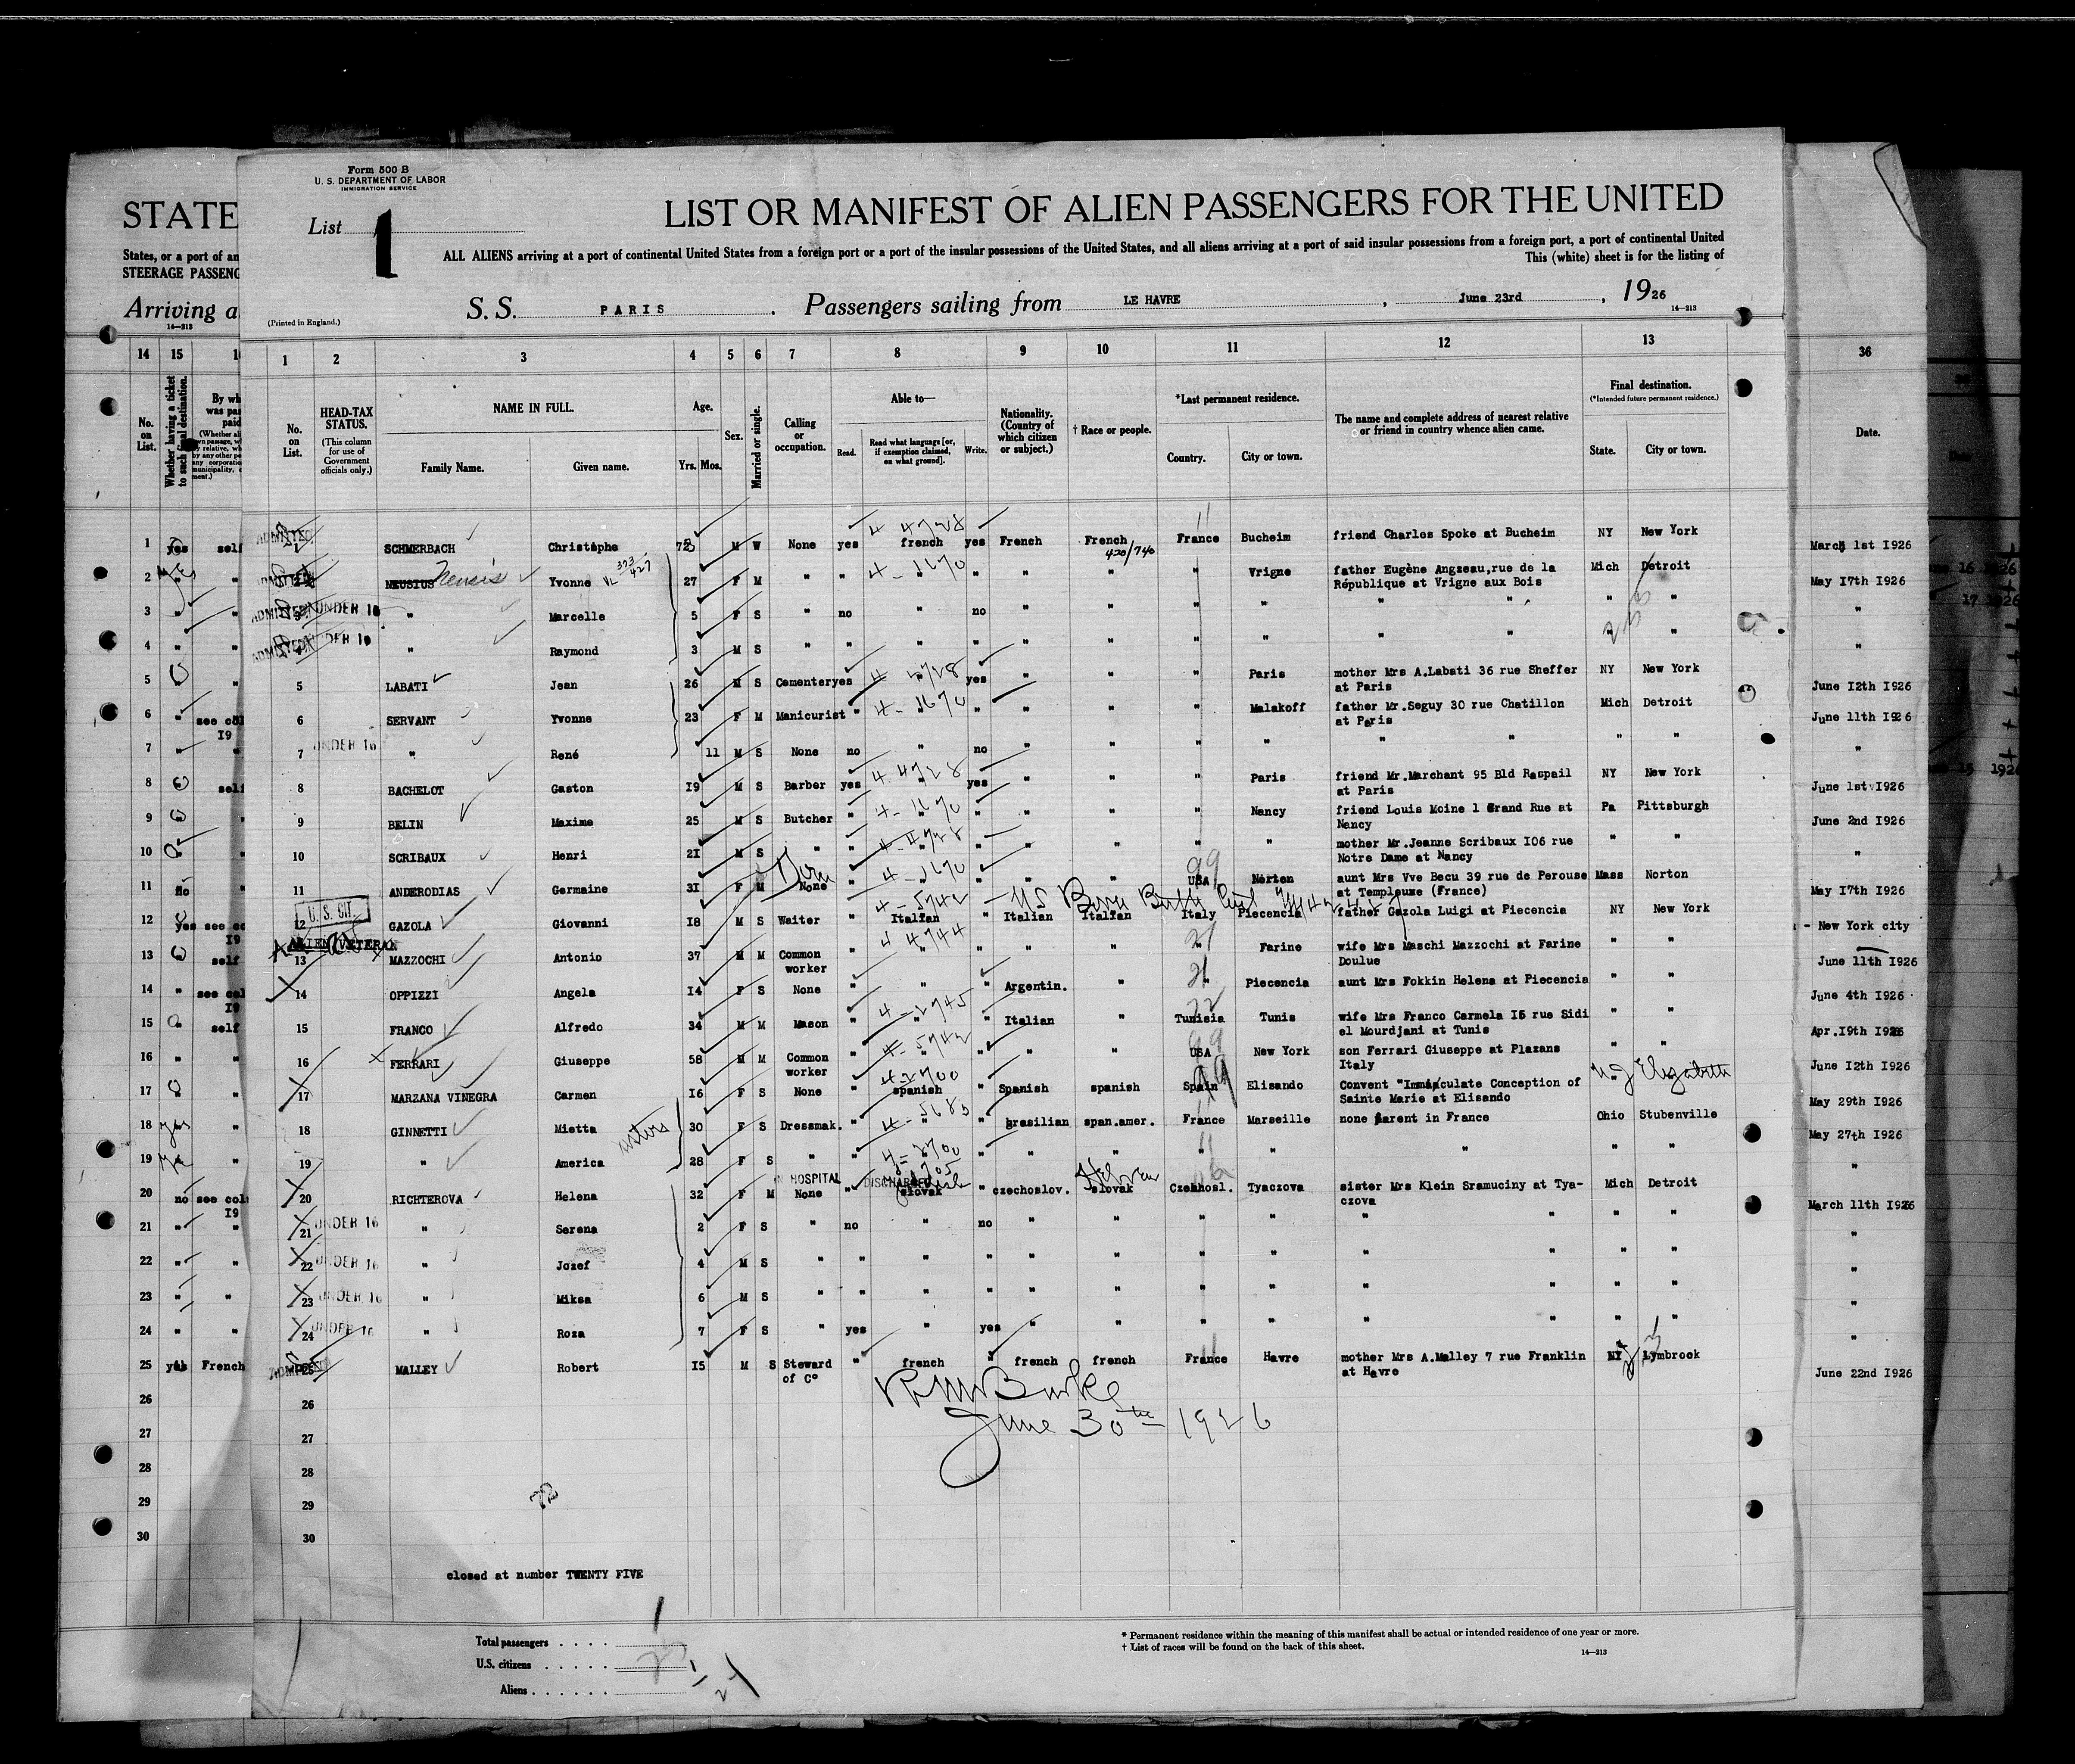 Form 500 B
U. S. DEPARTMENT OF LABOR
IMMIGRATION SERVICE
STATE
List 1
LIST OR MANIFEST OF ALIEN PASSENGERS FOR THE UNITED
States, or a port of an
STEERAGE PASSENG
ALL ALIENS arriving at a port of continental United States from a foreign port or a port of the insular possessions of the United States, and all aliens arriving at a port of said insular possessions from a foreign port, a port of continental United
This (white) sheet is for the listing of
Arriving a
14—213
(Printed in England.)
S. S. PARIS. Passengers sailing from LE HAVRE, June 23rd, 1926
14—213
14 15 1 2 3 4 5 6 7 8 9 10 11 12 13 36
No. on List.
Whether having a ticket to such final destination.
By wh
was pai
paid
No. on List.
HEAD-TAX STATUS.
(This column for use of Government officials only.)
NAME IN FULL.
Family Name. Given name.
Age.
Yrs. Mos.
Sex.
Married or single.
Calling or occupation.
Able to—
Read. Read what language [or, if exemption claimed, on what ground]. Write.
Nationality. (Country of which citizen or subject.)
† Race or people.
*Last permanent residence.
Country. City or town.
The name and complete address of nearest relative or friend in country whence alien came.
Final destination.
(*Intended future permanent residence.)
State. City or town.
Date.
1 yes self ADMITTED SCHMERBACH Christophe M W None yes french yes French French France Bucheim friend Charles Spoke at Bucheim NY New York March 1st 1926
420/740
2 " " NEUSIUS Neusis Yvonne VL 373 427 27 F M " " " " " " Vrigne father Eugène Angzeau,rue de la Mich Detroit May 17th 1926
République at Vrigne aux Bois
3 " " ADMITTED UNDER 16 " Marcelle 5 F S " no no " " " " " " " " "
4 " " ADMITTED UNDER 16 " Raymond 3 M S " " " " " " " " " " " " "
5 " 5 LABATI Jean 26 M S Cementer yes " yes " " " Paris mother Mrs A.Labati 36 rue Sheffer NY New York June 12th 1926
at Paris
6 " see col 19 6 SERVANT Yvonne 23 F M Manicurist " " " " " " Malakoff father Mr.Seguy 30 rue Chatillon Mich Detroit June 11th 1926
at Paris
7 " " 7 UNDER 16 " René 11 M S None no " no " " " " " " " " "
8 self 8 BACHELOT Gaston 19 M S Barber yes yes " " " Paris friend Mr.Marchant 95 Bld Raspail NY New York June 1st 1926
at Paris
9 " 9 BELIN Maxime 25 M S Butcher " " " " " Nancy friend Louis Moine 1 Grand Rue at Pa Pittsburgh June 2nd 1926
Nancy
10 " 10 SCRIBAUX Henri 21 M S " " " " " " " " mother Mr.Jeanne Scribaux 106 rue " " "
Notre Dame at Nancy
11 No " 11 ANDERODIAS Germaine 31 F M None " " " " USA Norton aunt Mrs Vve Becu 39 rue de Perouse Mass Norton May 17th 1926
at Templeuxe (France)
12 yes see co 19 U. S. CIT. 12 GAZOLA Giovanni 18 M S Waiter " Italian " Italian Italian Italy Piecencia father Gazola Luigi at Piecencia NY New York - New York city
US Born
ALIEN VETERAN
13 self 13 MAZZOCHI Antonio 37 M M Common worker " " " " " Farine wife Mrs Maschi Mazzochi at Farine " " June 11th 1926
Doulue
14 " see col 19 14 OPPIZZI Angela 14 F S None " " " Argentin. " " Piecencia aunt Mrs Fokkin Helena at Piecencia " " June 4th 1926
15 " self 15 FRANCO Alfredo 34 M M Mason " " " Italian " Tunisia Tunis wife Mrs Franco Carmela 15 rue Sidi " " Apr.19th 1926
el Mourdjani at Tunis
16 " " 16 FERRARI Giuseppe 58 M M Common worker " " " " " USA New York son Ferrari Giuseppe at Plazans " " June 12th 1926
Italy
17 " 17 MARZANA VINEGRA Carmen 16 F S None " spanish " Spanish spanish Spain Elisando Convent "Immaculate Conception of NJ Elizabeth May 29th 1926
Sainte Marie at Elisando
18 yes " 18 GINNETTI Mietta sisters 30 F S Dressmak. " " " brasilian span.amer. France Marseille none parent in France Ohio Stubenville May 27th 1926
19 " 19 " America 28 F S " " " " " " " " " " " "
IN HOSPITAL DISCHARGED
20 no see colu 19 20 RICHTEROVA Helena 32 F M None " slovak " czechoslov. slovak Hebrew Czechosl. Tyaczova sister Mrs Klein Sramuciny at Tya- Mich Detroit March 11th 1926
czova
21 " " 21 UNDER 16 " Serena 2 F S " no " no " " " " " " " " "
22 " " 22 UNDER 16 " Jozef 4 M S " " " " " " " " " " " " "
23 " " 23 UNDER 16 " Miksa 6 M S " " " " " " " " " " " " "
24 " " 24 UNDER 16 " Roza 7 F S " yes " yes " " " " " " " " "
25 yes French ADMITTED 25 MALLEY Robert 15 M S Steward of C° " french " french french France Havre mother Mrs A.Malley 7 rue Franklin NY Lymbrook June 22nd 1926
at Havre
26 26
RM Burke
June 30th 1926
27 27
28 28
29 29
30 30
closed at number TWENTY FIVE
Total passengers . . . .
U.S. citizens . . . . . .
Aliens . . . . . .
* Permanent residence within the meaning of this manifest shall be actual or intended residence of one year or more.
† List of races will be found on the back of this sheet.
14—213